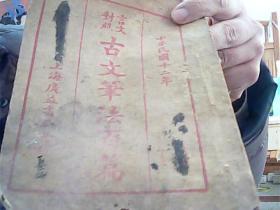 中華民國十二年
言文
對照
古文筆法百篇
上海廣益書